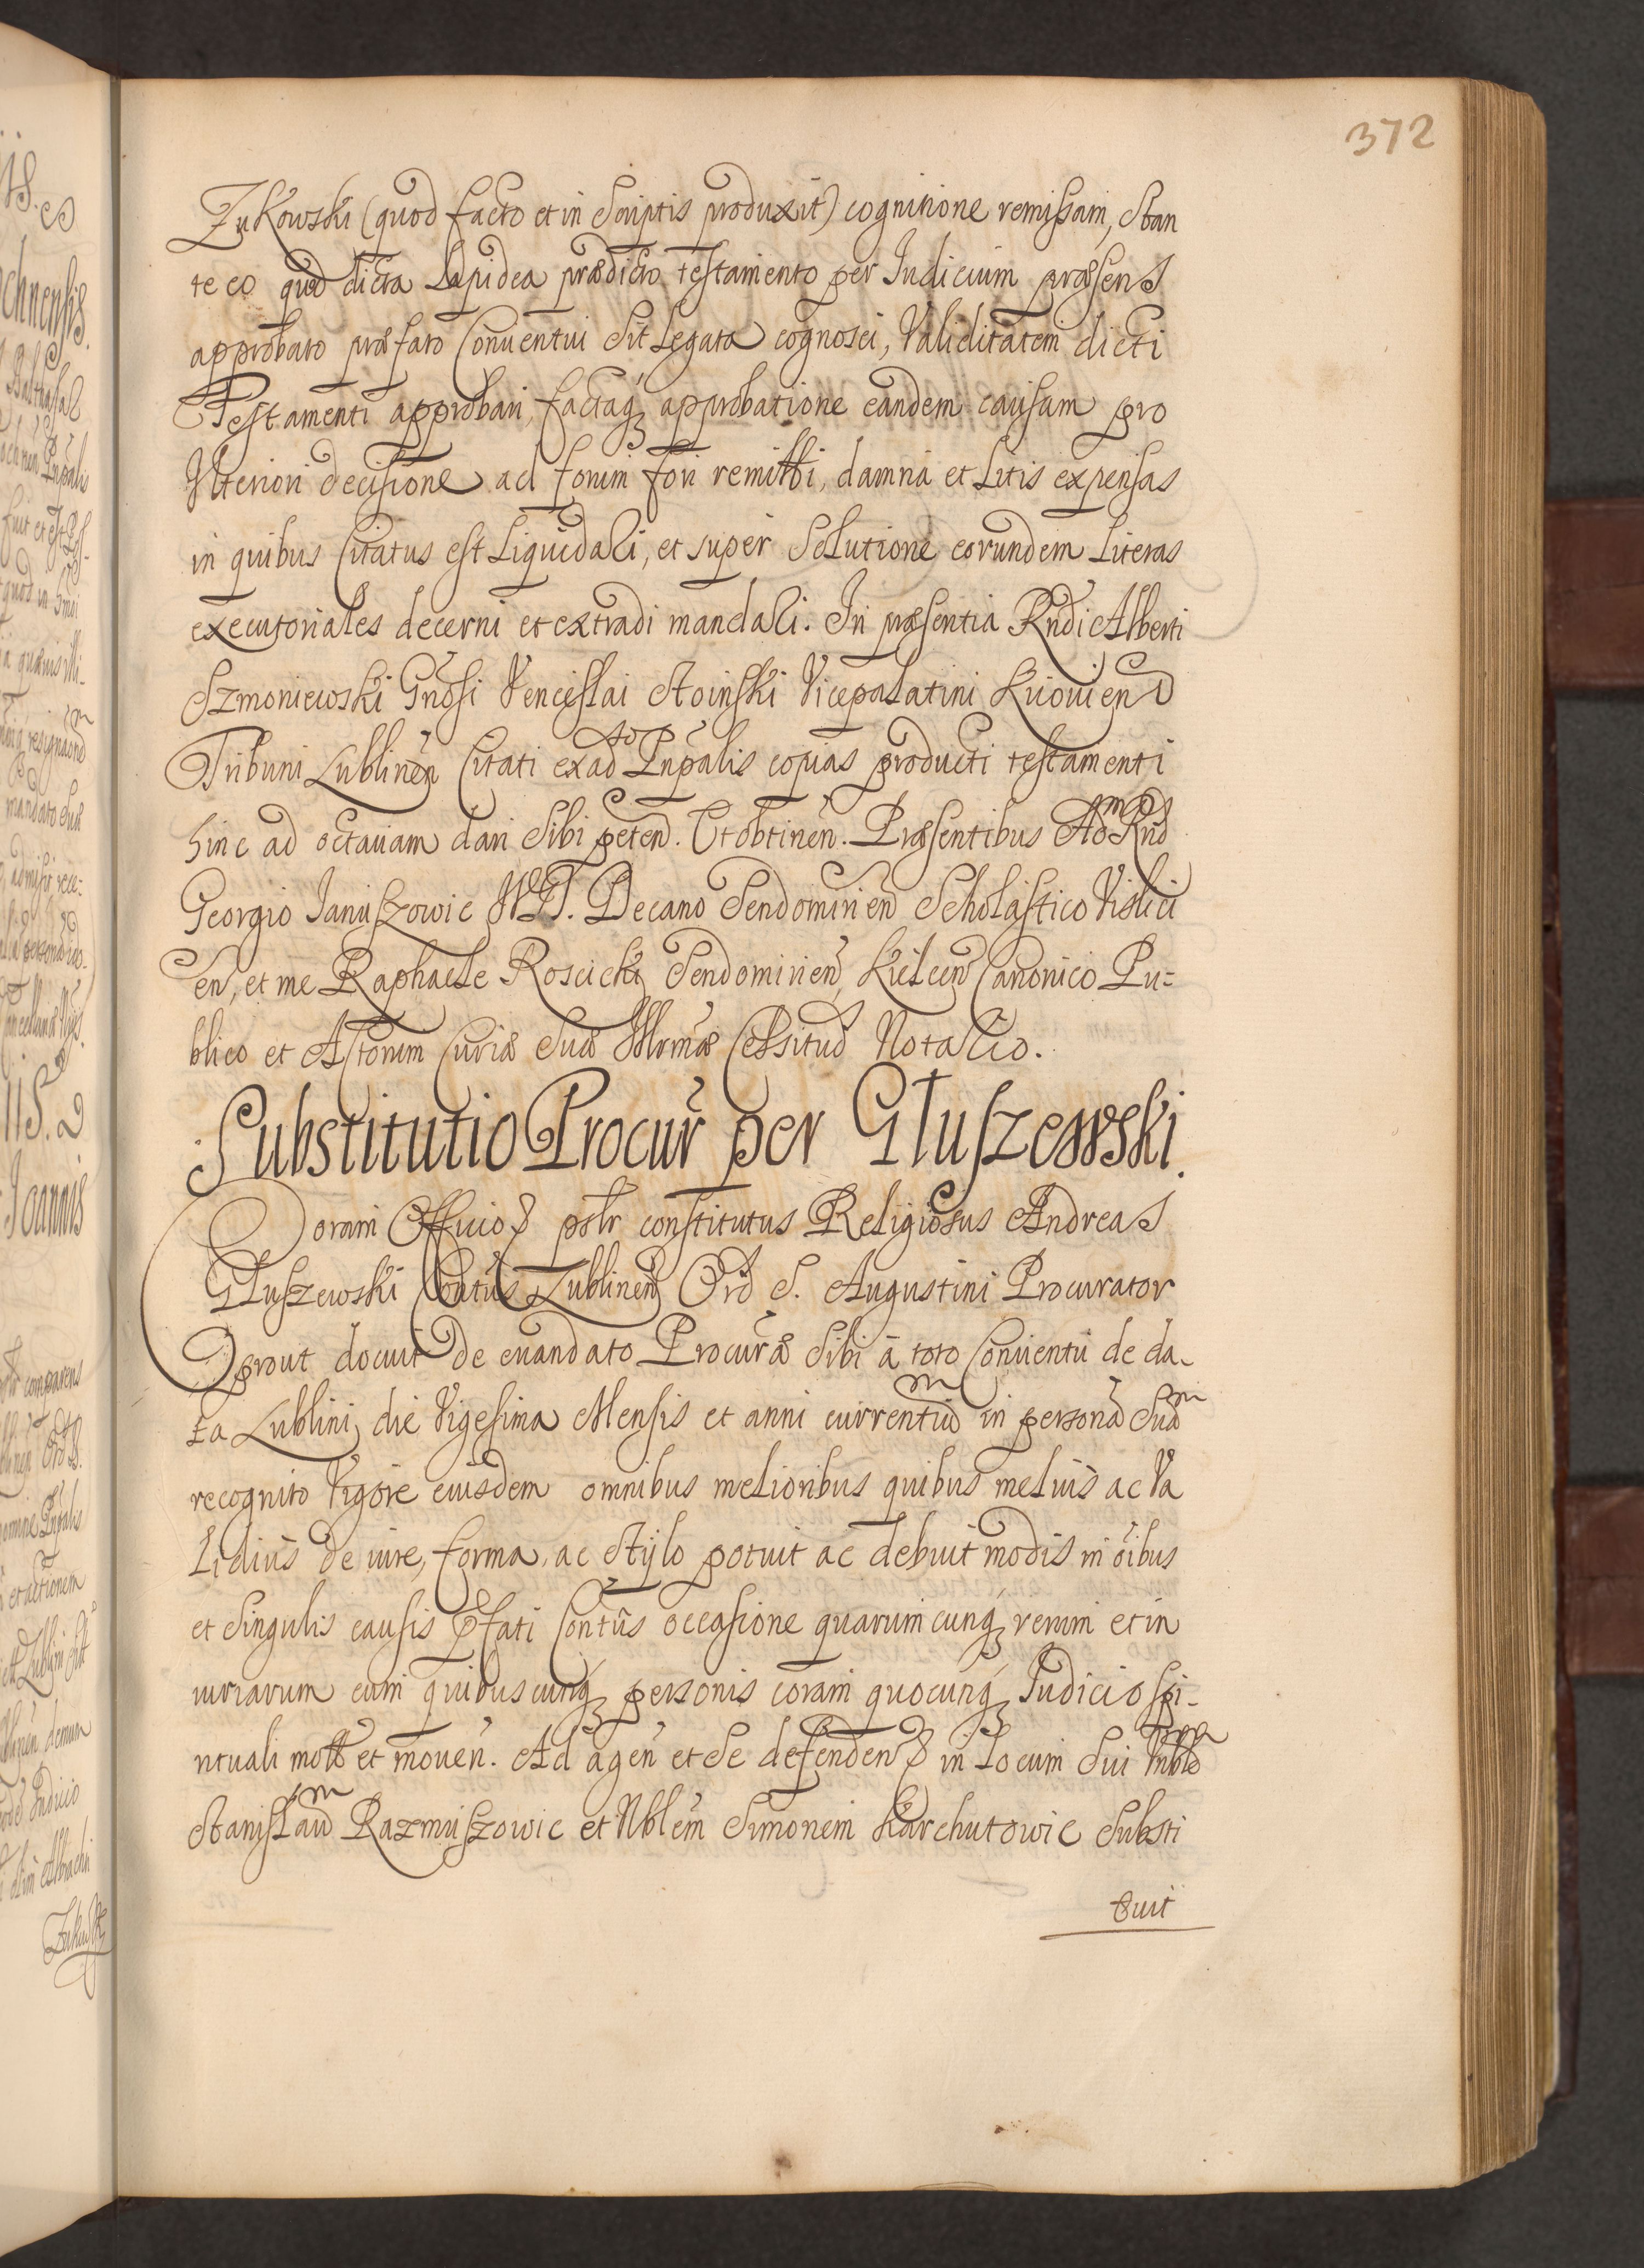 372
Zukowski (quod facto et in Scriptis produxit) cognitione remissam, Stan
te eo quod dicta Lapidea prædicto testamento per Iudicium præsens
approbato præfato Conuentui Sit Legata cognosci, Validitatem dicti
Testamenti approbari, factaq approbatione eandem causam pro
Vlteriori decisione ad forum fori remitti, damna et Litis expensas
in quibus Citatus est Liquidari, et super Solutione eorundem Literas
executoriales decerni et extradi mandari. In præsentia Rndi Alberti
Szmoniewski Gnosi Venceslai Stoinski Vicepalatini Kiouien
Tribuni Lublinen Citati ex ad Pnpalis copias producti testamenti
hinc ad octauam dari Sibi peten. Et obtinen. Præsentibus Ado Rnd
Georgio Ianuszowic Decano Sendomirien Scholastico Vislici
en, et me Raphaele Roscicki Sendomirien, Kielcen Canonico Pu=
blico et Actorum Curiæ Suæ Illmæ Celsitud Notario.
Substitutio Procur per Głuszewski.
Coram Officio pslr constitutus Religiosus Andreas
Głuszewski Contus Lublinen Ord S. Augustini Procurator
prout docuit de mandato Procuræ Sibi a toto Conuentu de da-
ta Lublini die Vigesima Mensis et anni currentium in personam Suam
recognito Vigore eiusdem omnibus melioribus quibus melius ac Va
Lidius de iure, forma, ac Stylo potuit ac debuit modis in oibus
et Singulis causis Pfati Contus occasione quarumcunq rerum et in
iuriarum cum quibuscunq personis coram quocunq Iudicio spi-
rituali mott et mouen. Ad agen et Se defenden in Locum Sui
Stanislaum Razmuszowic et Nblem Simonem Karchutowic Substi
tuit